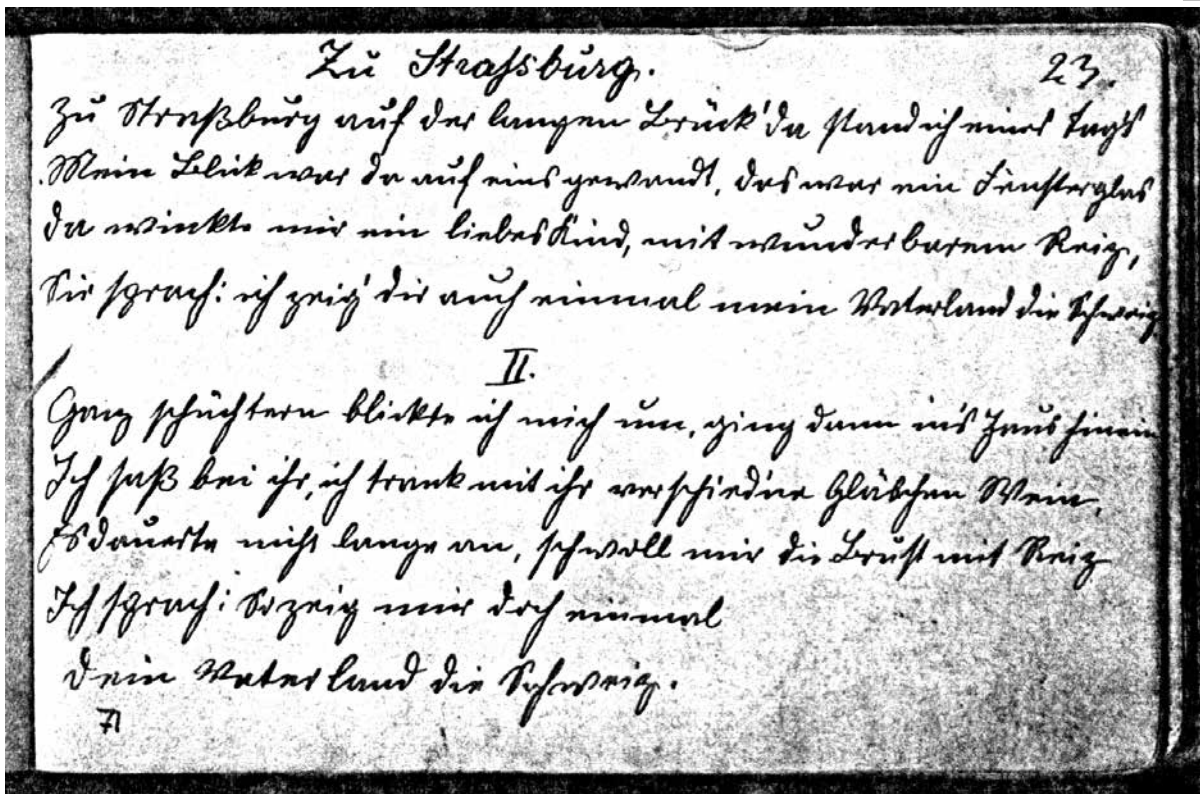 Zu Strassburg. 23.
Zu Straßburg auf der langen Brück' da stand ich eines Tag's
Mein Blick war da auf eins gewandt, das war ein Fensterglas
da winkte mir ein liebes Kind, mit wunderbarem Reiz,
Sie sprach: ich zeig' dir auch einmal mein Vaterland die Schweiz
II.
Ganz schüchtern blickte ich mich um, ging dann in's Haus hinein
Ich saß bei ihr, ich trank mit ihr verschiedne Gläschen Wein,
Es dauerte nicht lange an, schwoll mir die Brust mit Reiz
Ich sprach: So zeig mir doch einmal
dein Vaterland die Schweiz.
71